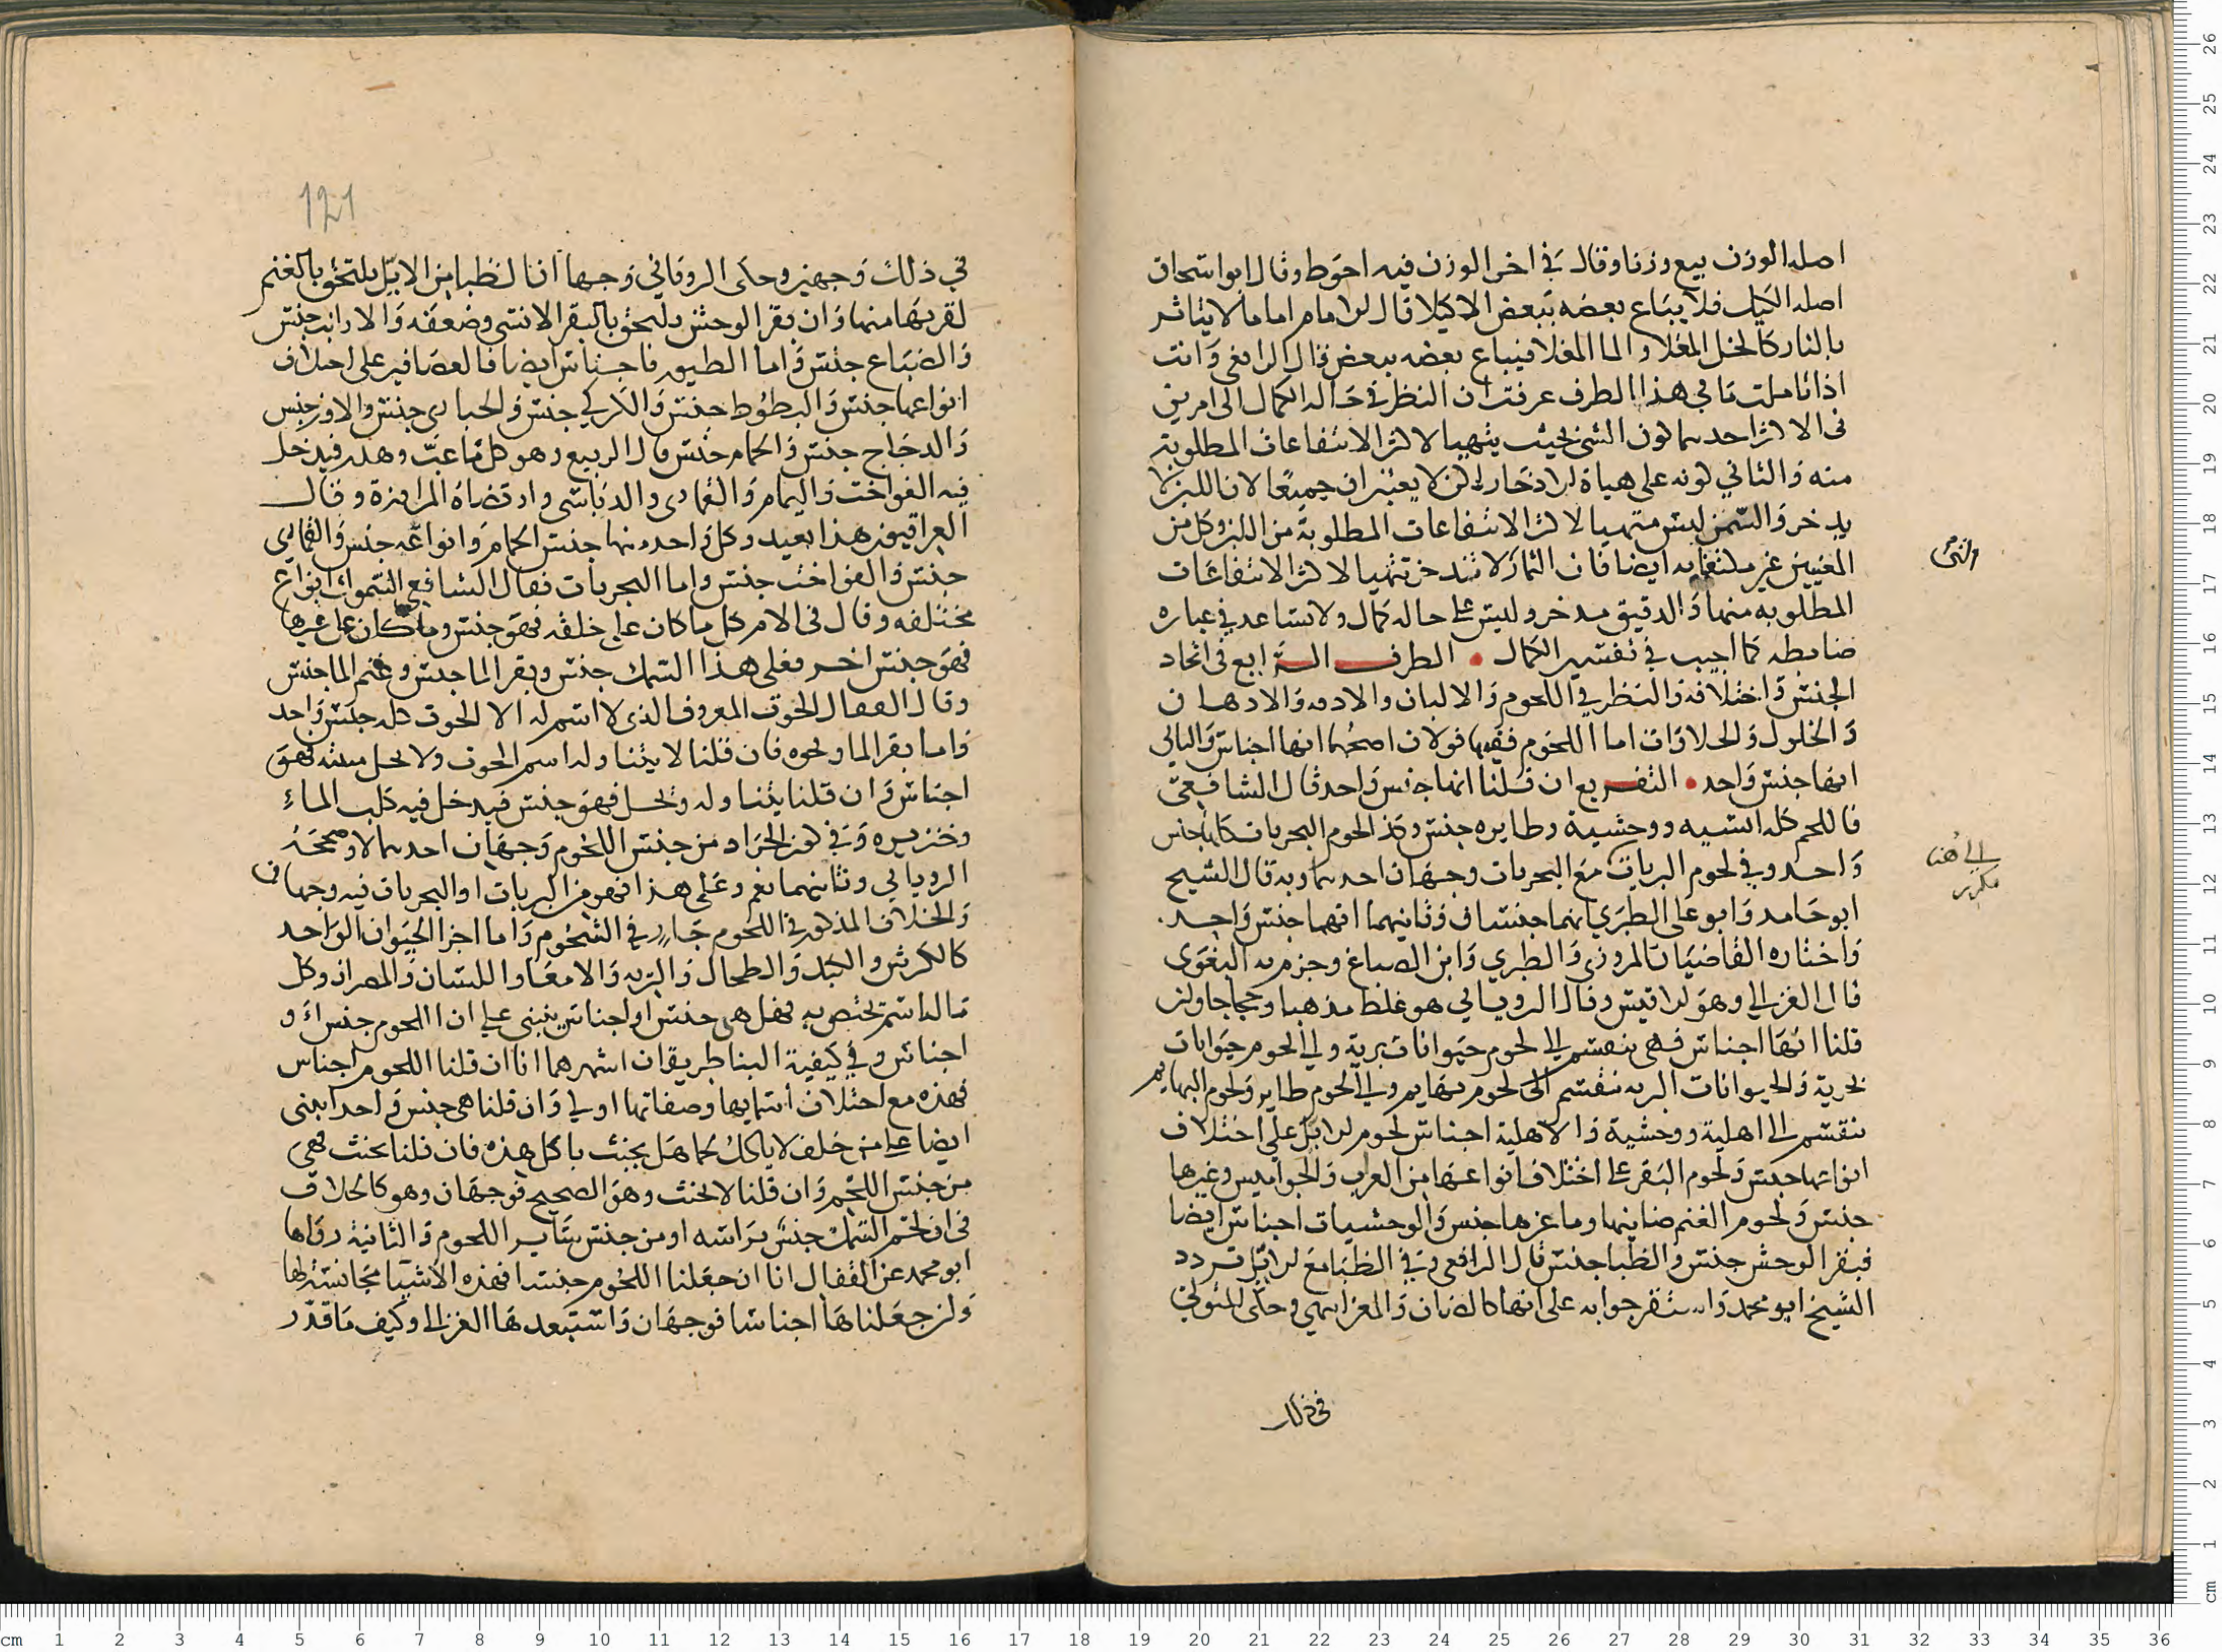 اصله الوزن بيع وزنا وقال في اخر الوزن فيه احوط وقال ابو اسحاق
اصله الكيل فلا يباع بعضه ببعض الا كيلا قال الامام اما ما لا يتاثر
بالنار كالخل المغلا والما المغلا فيباع بعضه ببعض قال الرافعي وانت
اذا تاملت ما في هذا الطرف عرفت ان النظر في حاله الكمال الى امرين
في الاكثر احدهما كون الشي بحيث يتهيا لاكثر الانتفاعات المطلوبة
منه والثاني كونه على هياة الادخار لكن لا يعتبران جميعا لان اللبن لا
يدخر والسمن ليس متهيا لاكثر الانتفاعات المطلوبة من اللبن وكل من
المعنيين غير مكتفا به ايضا فان الثمار لا تدخر تتهيا لاكثر الانتفاعات
المطلوبه منها والدقيق مدخر وليس على حاله كمال ولا تساعد في عباره
ضابطه كما احب في تفسير الكمال الطرف الرابع في اتحاد
الجنس واختلافه والنظر في اللحوم والالبان والادقه والادهان
والخلول والحلاوات اما اللحوم ففيها قولان اصحهما انها اجناس والثاني
انها جنس واحد التفريع ان قلنا انها جنس واحد قال الشافعي
فاللحم كله انسيه ووحشية وطايره جنس وكذا لحوم البحريات كلها جنس
واحد وفي لحوم البريات مع البحريات وجهان احدهما وبه قال الشيخ
ابو حامد وابو على الطبري انهما جنسان وثانيهما انهما جنس واحد
واختاره القاضيان المروزي والطبري وابن الصباغ وجزم به البغوى
قال الغزالي وهو الاقيس وقال الروياني هو غلط مذهبا وحجاجا ولن
قلنا انها اجناس فهى تنقسم الى لحوم حيوانات برية والى لحوم حيوانات
بحرية والحيوانات البريه تنقسم الى لحوم بهايم والى لحوم طاير ولحوم البهايم
تنقسم الى اهلية ووحشية والاهلية اجناس لحوم الابل على اختلاف
انواعها جنس ولحوم البقر على اختلاف انواعها من العراب والجواميس وغيرها
جنس ولحوم الغنم ضاينها وماعزها جنس والوحشيات اجناس ايضا
فبقر الوحش جنس والظبا جنس قال الرافعي وفي الظبا مع الابل تردد
الشيخ ابو محمد واستقر جوابه على انها كالضان والمعز انتهي وحكى المتولي
في ذلك
والثاني
الى هنا
مكرر
121
في ذلك وجهين وحكى الروياني وجها ان الظبا من الابل يلتحق بالغنم
لقربها منها وان بقر الوحش يلتحق بالبقر الانسي وضعفه والارانب جنس
والضباع جنس واما الطيور فاجناس ايضا فالعصافير على اختلاف
انواعها جنس والبطوط جنس والكركي جنس والحبارى جنس والاوز جنس
والدجاج جنس والحمام جنس قال الربيع وهو كل ما عب وهدر فيدخل
فيه الفواخت واليمام والقمارى والدباسى وارتضاه المراوزة وقال
العراقيون هذا بعيد وكل واحد منها جنس الحمام وانواعه جنس والقماري
جنس والفواخت جنس واما البحريات فقال الشافعي السموك انواع
مختلفه وقال في الام كل ما كان على خلقه فهو جنس وما كان على غيرها
فهو جنس اخر فعلى هذا السمك جنس وبقر الما جنس وغنم الما جنس
وقال القفال الحوت المعروف الذي لا اسم له الا الحوت كله جنس واحد
واما بقر الما ونحوه فان قلنا لا يتناوله اسم الحوت ولا يحل ميتته فهو
اجناس وان قلنا يتناوله ويحل فهو جنس فيدخل فيه كلب الماء
وخنزيره وفي كون الجراد من جنس اللحوم وجهان احدهما لا وصححه
الروياني وثانيهما نعم وعلى هذا فهو من البريات او البحريات فيه وجهان
والخلاف المذكور في اللحوم جار في الشحوم واما اجزا الحيوان الواحد
كالكرش والكبد والطحال والريه والامعا واللسان والمصران وكل
ما له اسم يختص به فهل هي جنس او اجناس ينبني على ان اللحوم جنس او
اجناس وفي كيفية البنا طريقان اشهرهما انا ان قلنا اللحوم اجناس
فهذه مع اختلاف اسمايها وصفاتها اولى وان قلنا هي جنس واحد ابني
ايضا على من حلف لا ياكل لحما هل يحنث باكل هذه فان قلنا يحنث فهى
من جنس اللحم وان قلنا لا يحنث وهو الصحيح فوجهان وهو كالخلاف
في ان لحم السمك جنس براسه او من جنس ساير اللحوم والثانية رواها
ابو محمد عن القفال انا ان جعلنا اللحوم جنسا فهذه الاشيا مجانسة لها
ولن جعلناها اجناسا فوجهان واستبعدها الغزالى وكيف ما قدر